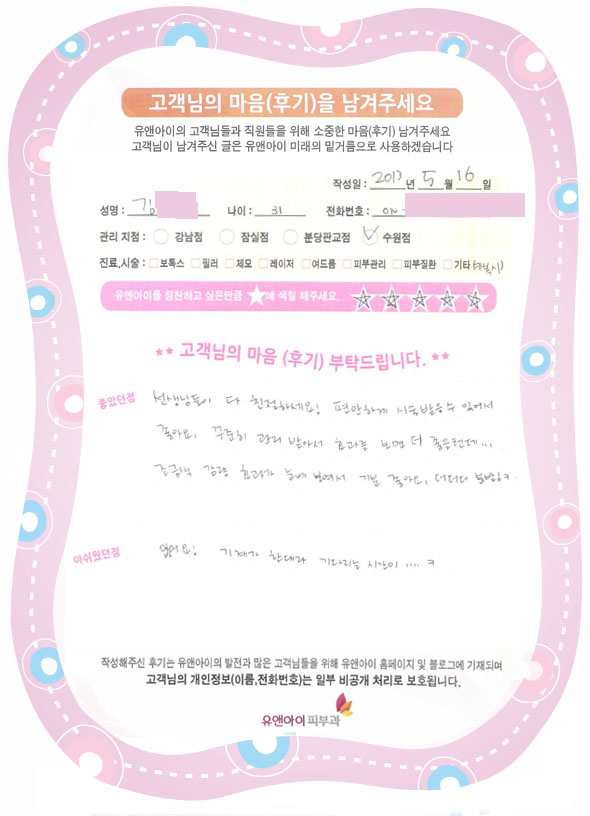 고객님의 마음(후기)을 남겨주세요
유앤아이의 고객님들과 직원들을 위해 소중한 마음(후기) 남겨주세요
고객님이 남겨주신 글은 유앤아이 미래의 밑거름으로 사용하겠습니다
작성일 : 2013 년 5 월 16 일
성명 : 김 나이 : 31 전화번호 : 010
관리 지점 : 강남점 잠실점 분당판교점 수원점
진료,시술 : 보톡스 필러 제모 레이저 여드름 피부관리 피부질환 기타
유앤아이를 칭찬하고 싶은만큼 ★에 색칠 해주세요.
** 고객님의 마음 (후기) 부탁드립니다. **
좋았던점 선생님들이 다 친절하세요! 편안하게 시술받을수 있어서
좋아요. 꾸준히 관리 받아서 효과를 보면 더 좋을텐데...
조금씩 감량 효과가 눈에 보여서 기분 좋아요.
아쉬웠던점 없어요! 기계가 한대라 기다리는 시간이 .... ㅋ
작성해주신 후기는 유앤아이의 발전과 많은 고객님들을 위해 유앤아이 홈페이지 및 블로그에 기재되며
고객님의 개인정보(이름,전화번호)는 일부 비공개 처리로 보호됩니다.
유앤아이피부과